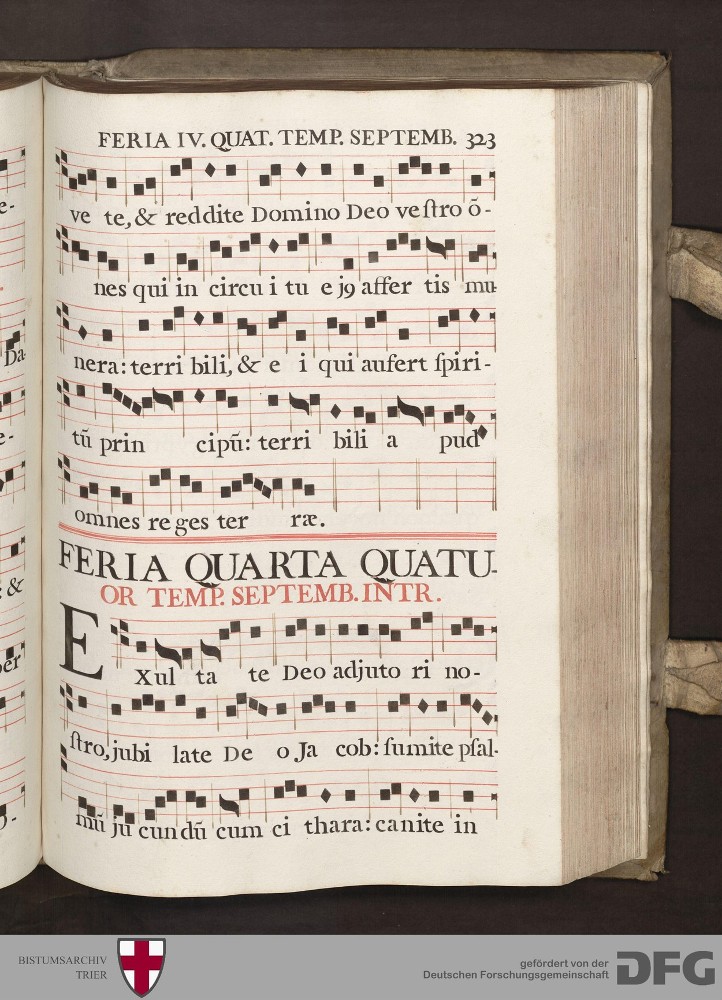 FERIA IV. QUAT. TEMP. SEPTEMB. 323
ve te, & reddite Domino Deo veſtro õ-
nes qui in circu i tu e jꝯ affer tis mu-
nera: terri bili, & e i qui aufert ſpiri-
tũ prin cipũ: terri bili a pud
omnes re ges ter ræ.
FERIA QUARTA QUATU-
OR TEMP. SEPTEMB. INTR.
EXul ta te Deo adjuto ri no-
ſtro, jubi late De o Ja cob: ſumite pſal-
mũ ju cundũ cum ci thara: canite in
e-
Da-
e-
: &
per
o-
BISTUMSARCHIV
TRIER
gefördert von der
Deutschen Forschungsgemeinschaft
DFG